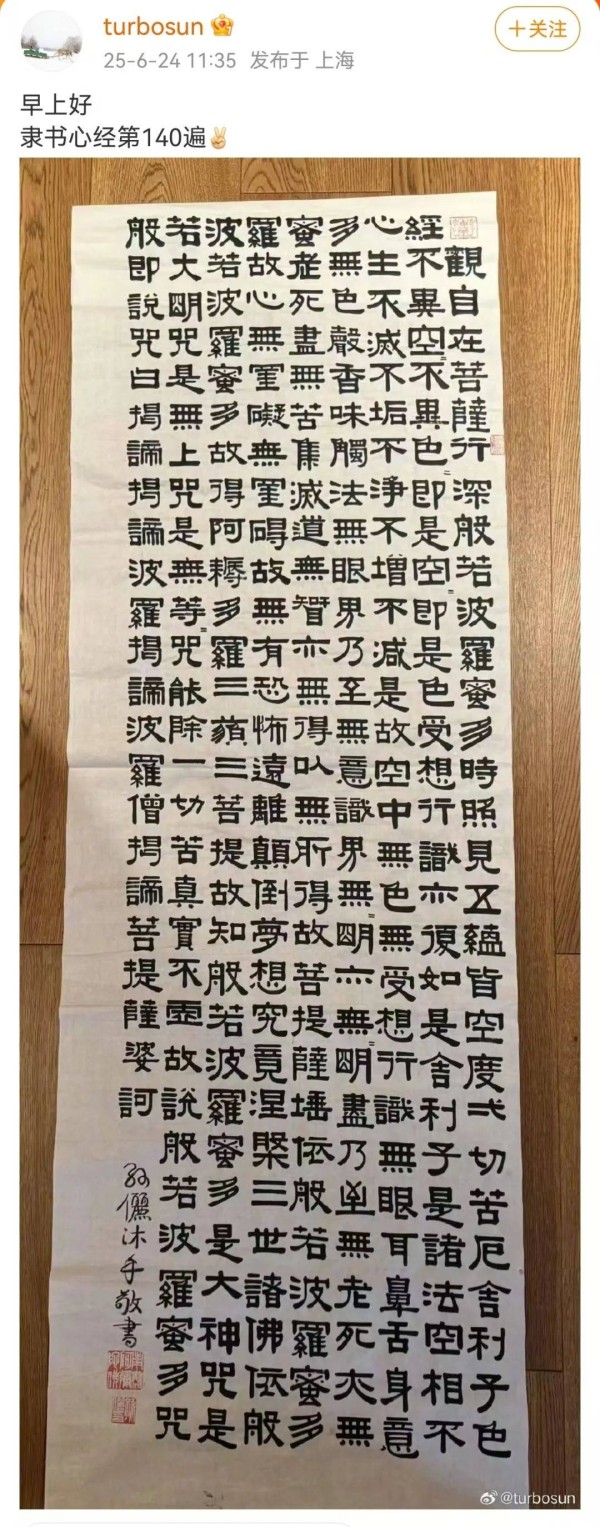 turbosun
25-6-24 11:35 发布于 上海
+关注
早上好
隶书心经第140遍✌🏻
般若波羅蜜多心經
觀自在菩薩行深般若波羅蜜多時照見五蘊皆空度一切苦厄舍利子色
不異空〻不異色〻即是空〻即是色受想行識亦復如是舍利子是諸法空相不
生不滅不垢不淨不增不減是故空中無色無受想行識無眼耳鼻舌身意
無色聲香味觸法無眼界乃至無意識界無〻明亦無〻明盡乃至無老死亦無
老死盡無苦集滅道無智亦無得以無所得故菩提薩埵依般若波羅蜜多
故心無罣礙無罣碍故無有恐怖遠離顛倒夢想究竟涅槃三世諸佛依般
若波羅蜜多故得阿耨多羅三藐三菩提故知般若波羅蜜多是大神咒是
大明咒是無上咒是無等〻咒能除一切苦真實不虛故說般若波羅蜜多咒
即說咒曰揭諦揭諦波羅揭諦波羅僧揭諦菩提薩婆訶
孫儷沐手敬書
@turbosun